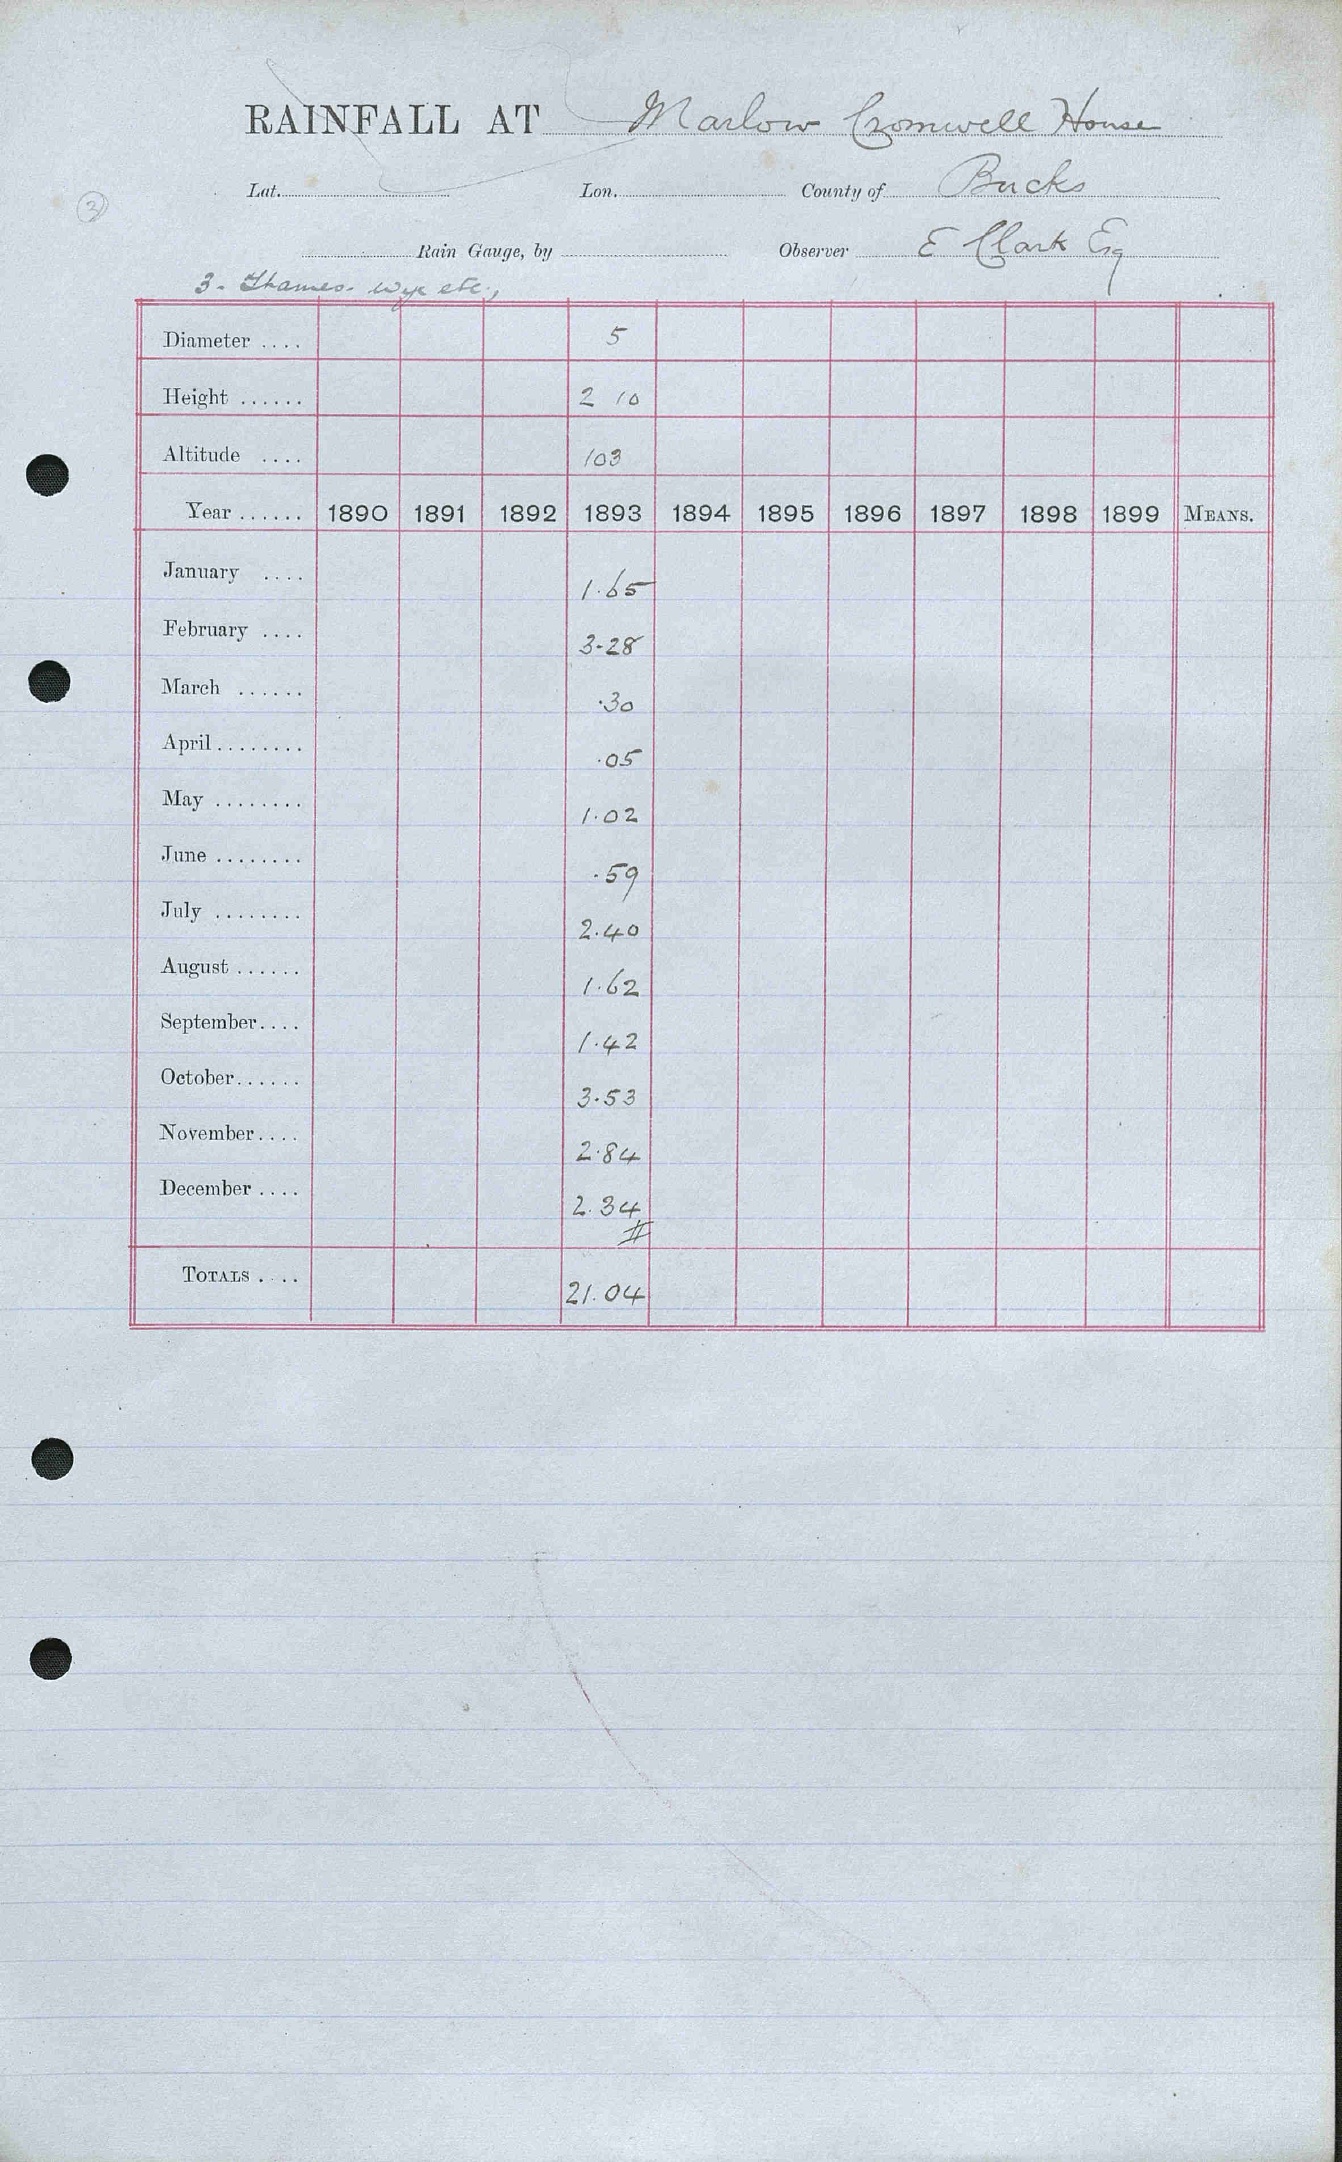 RAINFALL AT Marlow Cromwell House
Lat. Lon. County of Bucks
3
Rain Gauge, by Observer E Clark Esq
3. Thames. Wye etc.,
Diameter .... 5
Height ...... 2 10
Altitude .... 103
Year ...... 1890 1891 1892 1893 1894 1895 1896 1897 1898 1899 MEANS.
January .... 1.65
February .... 3.28
March ...... .30
April ........ .05
May ........ 1.02
June ........ .59
July ........ 2.40
August ...... 1.62
September.... 1.42
October...... 3.53
November.... 2.84
December .... 2.34
TOTALS .... 21.04